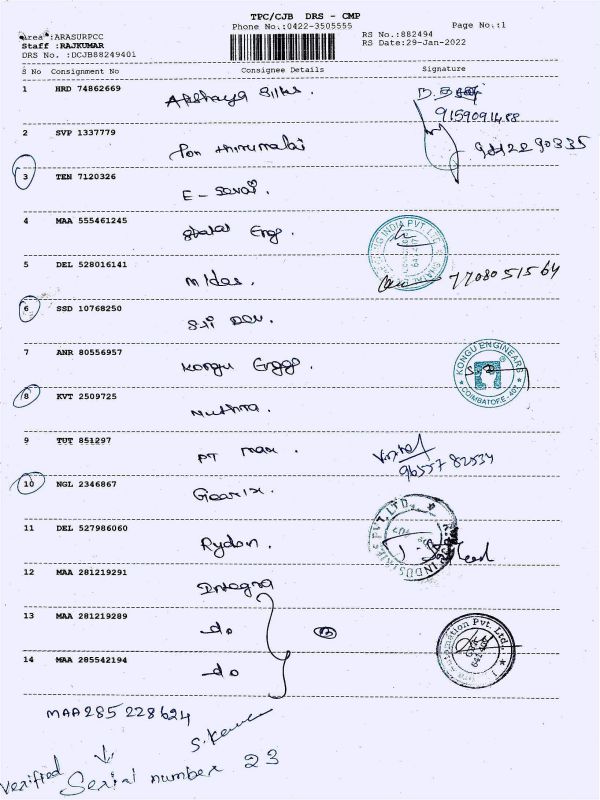 TPC/CJB DRS - CMP
Phone No.:0422-3505555 Page No.:1
Area :ARASURPCC RS No.:882494
Staff :RAJKUMAR RS Date:29-Jan-2022
DRS No. :DCJB88249401
S No Consignment No Consignee Details Signature
1 HRD 74862669
9159091488
2 SVP 1337779 Pon thirumalai
3 TEN 7120326 E-Sevai.
4 MAA 555461245 Engg.
INDIA PVT. LTD.
5 DEL 528016141 Midas. 7708051564
6 SSD 10768250 Sri Dev.
7 ANR 80556957 Kongu Engg.
KONGU ENGINEARS
COIMBATORE - 407
8 KVT 2509725 Muthra.
9 TUT 851297 PT Max.
10 NGL 2346867 Gearix.
11 DEL 527986060 Rydon.
INDUSTRIES PVT. LTD.
12 MAA 281219291 Integra
13 MAA 281219289 do
Automation Pvt. Ltd.
14 MAA 285542194 do
MAA285228624
Verified Serial number 23